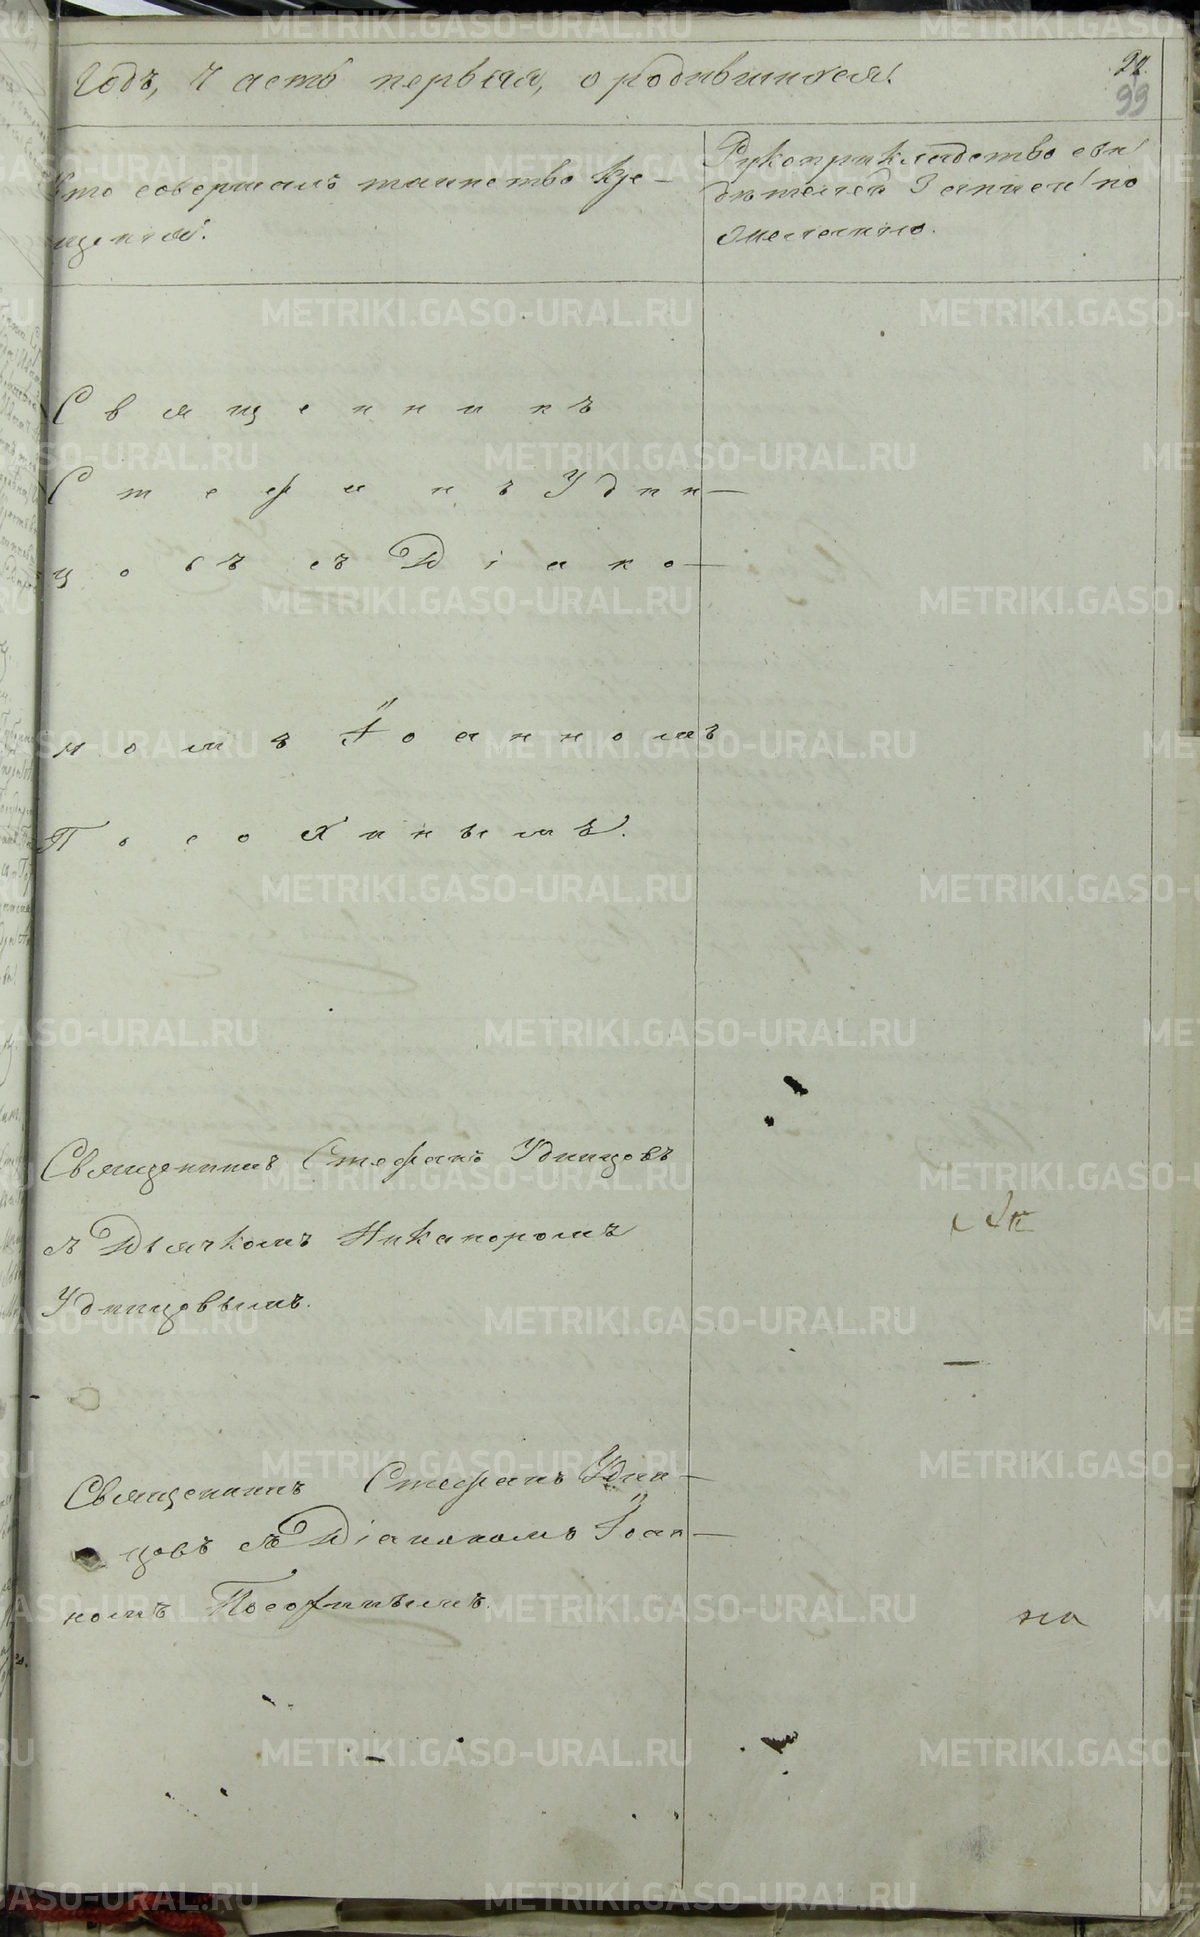 Годъ, Часть первая, о родившихся.
92.
99
Кто совершалъ таинство Кре-
щенія.
Рукоприкладство сви
дѣтелей Записи по
желанію.
Священникъ
Стефанъ Удин-
цовъ съ Діако-
номъ Іоанномъ
Посохинымъ.
Священникъ Стефанъ Удинцовъ
съ Дьячкомъ Никаноромъ
Удинцовымъ.
Священникъ Стефанъ Удин-
цовъ съ Діакономъ Іоан-
номъ Посохинымъ.
на
METRIKI.GASO-URAL.RU